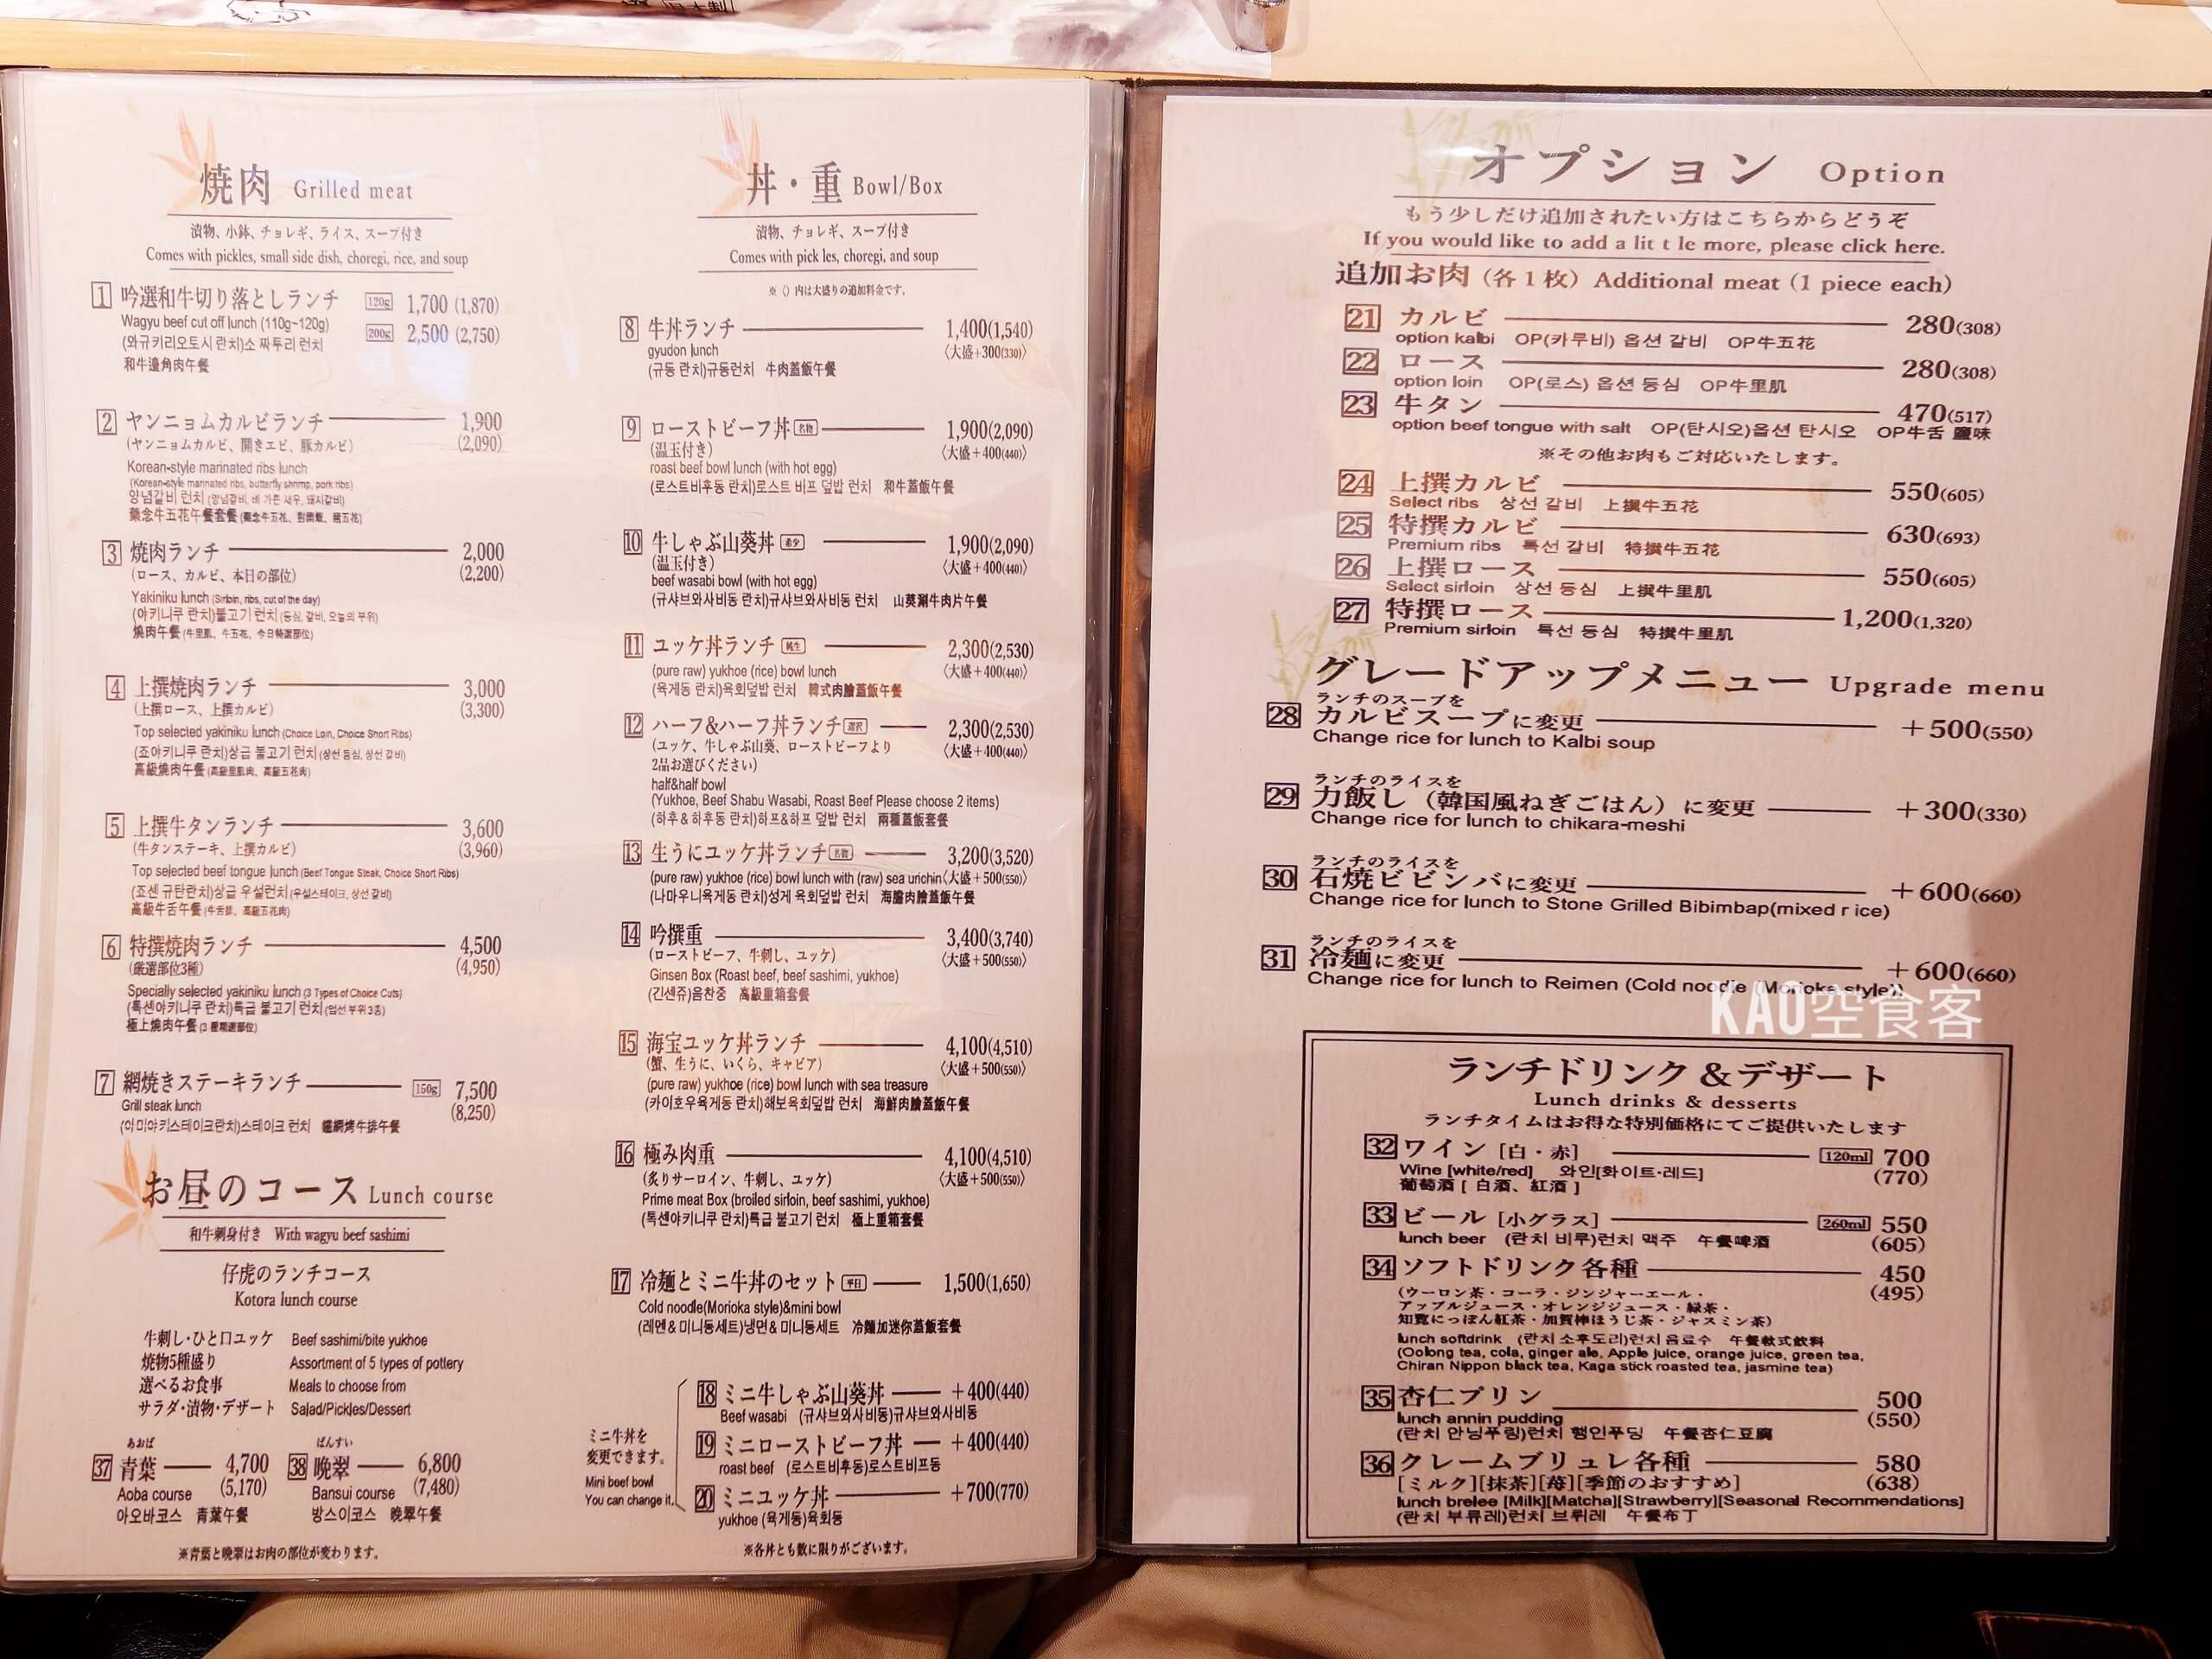 焼肉 Grilled meat
漬物、小鉢、チョレギ、ライス、スープ付き
Comes with pickles, small side dish, choregi, rice, and soup
1 吟選和牛切り落としランチ 120g 1,700 (1,870)
Wagyu beef cut off lunch (110g~120g) 200g 2,500 (2,750)
(와규키리오토시 란치)소 짜투리 런치
和牛邉角肉午餐
2 ヤンニョムカルビランチ 1,900
(ヤンニョムカルビ、開きエビ、豚カルビ) (2,090)
Korean-style marinated ribs lunch
(Korean-style marinated ribs, butterfly shrimp, pork ribs)
양념갈비 런치
3 焼肉ランチ 2,000
(ロース、カルビ、本日の部位) (2,200)
Yakiniku lunch (Sirloin, ribs, cut of the day)
(야키니쿠 란치)불고기 런치 (등심, 갈비, 오늘의 부위)
燒肉午餐 (牛里肌、牛五花、今日特選部位)
4 上撰焼肉ランチ 3,000
(上撰ロース、上撰カルビ) (3,300)
Top selected yakiniku lunch (Choice Loin, Choice Short Ribs)
(죠야키니쿠 란치)상급 불고기 런치 (상선 등심, 상선 갈비)
高級燒肉午餐 (高級里肌肉、高級五花肉)
5 上撰牛タンランチ 3,600
(牛タンステーキ、上撰カルビ) (3,960)
Top selected beef tongue lunch (Beef Tongue Steak, Choice Short Ribs)
(죠센 규탄란치)상급 우설런치 (우설스테이크, 상선 갈비)
高級牛舌午餐 (牛舌排、高級五花肉)
6 特撰焼肉ランチ 4,500
(厳選部位3種) (4,950)
Specially selected yakiniku lunch (3 Types of Choice Cuts)
(톡센야키니쿠 란치)특급 불고기 런치 (엄선 부위 3종)
極上燒肉午餐 (3 種精選部位)
7 網焼きステーキランチ 150g 7,500
Grill steak lunch (8,250)
(아미야키스테이크란치)스테이크 런치 鐵網烤牛排午餐
お昼のコース Lunch course
和牛刺身付き With wagyu beef sashimi
仔虎のランチコース
Kotora lunch course
牛刺し・ひと口ユッケ Beef sashimi/bite yukhoe
焼物5種盛り Assortment of 5 types of pottery
選べるお食事 Meals to choose from
サラダ・漬物・デザート Salad/Pickles/Dessert
あおば ばんすい
37 青葉 4,700 38 晩翠 6,800
Aoba course (5,170) Bansui course (7,480)
아오바코스 青葉午餐 방스이코스 晩翠午餐
※青葉と晩翠はお肉の部位が変わります。
丼・重 Bowl/Box
漬物、チョレギ、スープ付き
Comes with pick les, choregi, and soup
※〈〉内は大盛りの追加料金です。
8 牛丼ランチ 1,400(1,540)
gyudon lunch 〈大盛+300(330)〉
(규동 란치)규동런치 牛肉蓋飯午餐
9 ローストビーフ丼 名物 1,900(2,090)
(温玉付き) 〈大盛+400(440)〉
roast beef bowl lunch (with hot egg)
(로스트비후동 란치)로스트 비프 덮밥 런치 和牛蓋飯午餐
10 牛しゃぶ山葵丼 希少 1,900(2,090)
(温玉付き) 〈大盛+400(440)〉
beef wasabi bowl (with hot egg)
(규샤브와사비동 란치)규샤브와사비동 런치 山葵涮牛肉片午餐
11 ユッケ丼ランチ 純生 2,300(2,530)
(pure raw) yukhoe (rice) bowl lunch 〈大盛+400(440)〉
(육게동 란치)육회덮밥 런치 韓式肉膾蓋飯午餐
12 ハーフ&ハーフ丼ランチ 選択 2,300(2,530)
(ユッケ、牛しゃぶ山葵、ローストビーフより 〈大盛+400(440)〉
2品お選びください)
half&half bowl
(Yukhoe, Beef Shabu Wasabi, Roast Beef Please choose 2 items)
(하후&하후동 란치)하프&하프 덮밥 런치 兩種蓋飯套餐
13 生うにユッケ丼ランチ 名物 3,200(3,520)
(pure raw) yukhoe (rice) bowl lunch with (raw) sea urichin〈大盛+500(550)〉
(나마우니육게동 란치)성게 육회덮밥 런치 海膽肉膾蓋飯午餐
14 吟撰重 3,400(3,740)
(ローストビーフ、牛刺し、ユッケ) 〈大盛+500(550)〉
Ginsen Box (Roast beef, beef sashimi, yukhoe)
(긴센쥬)음찬중 高級重箱套餐
15 海宝ユッケ丼ランチ 4,100(4,510)
(蟹、生うに、いくら、キャビア) 〈大盛+500(550)〉
(pure raw) yukhoe (rice) bowl lunch with sea treasure
(카이호우육게동 란치)해보육회덮밥 런치 海鮮肉膾蓋飯午餐
16 極み肉重 4,100(4,510)
(炙りサーロイン、牛刺し、ユッケ) 〈大盛+500(550)〉
Prime meat Box (broiled sirloin, beef sashimi, yukhoe)
(톡센야키니쿠 란치)특급 불고기 런치 極上重箱套餐
17 冷麺とミニ牛丼のセット 平日 1,500(1,650)
Cold noodle(Morioka style)&mini bowl
(레멘&미니동세트)냉면&미니동세트 冷麵加迷你蓋飯套餐
ミニ牛丼を
変更できます。
Mini beef bowl
You can change it.
18 ミニ牛しゃぶ山葵丼 +400(440)
Beef wasabi (규샤브와사비동)규샤브와사비동
19 ミニローストビーフ丼 +400(440)
roast beef (로스트비후동)로스트비프동
20 ミニユッケ丼 +700(770)
yukhoe (육게동)육회동
※各丼とも数に限りがございます。
オプション Option
もう少しだけ追加されたい方はこちらからどうぞ
If you would like to add a lit t le more, please click here.
追加お肉 (各1枚) Additional meat (1 piece each)
21 カルビ 280(308)
option kalbi OP(카루비) 옵션 갈비 OP牛五花
22 ロース 280(308)
option loin OP(로스) 옵션 등심 OP牛里肌
23 牛タン 470(517)
option beef tongue with salt OP(탄시오)옵션 탄시오 OP牛舌 鹽味
※その他お肉もご対応いたします。
24 上撰カルビ 550(605)
Select ribs 상선 갈비 上撰牛五花
25 特撰カルビ 630(693)
Premium ribs 특선 갈비 特撰牛五花
26 上撰ロース 550(605)
Select sirloin 상선 등심 上撰牛里肌
27 特撰ロース 1,200(1,320)
Premium sirloin 특선 등심 特撰牛里肌
グレードアップメニュー Upgrade menu
ランチのスープを
28 カルビスープに変更 +500(550)
Change rice for lunch to Kalbi soup
ランチのライスを
29 力飯し(韓国風ねぎごはん)に変更 +300(330)
Change rice for lunch to chikara-meshi
ランチのライスを
30 石焼ビビンバに変更 +600(660)
Change rice for lunch to Stone Grilled Bibimbap(mixed r ice)
ランチのライスを
31 冷麺に変更 +600(660)
Change rice for lunch to Reimen (Cold noodle (Morioka style))
KAU空食客
ランチドリンク&デザート
Lunch drinks & desserts
ランチタイムはお得な特別価格にてご提供いたします
32 ワイン [白・赤] 120ml 700
Wine [white/red] 와인[화이트・레드] (770)
葡萄酒 [ 白酒、紅酒 ]
33 ビール [小グラス] 260ml 550
lunch beer (란치 비루)런치 맥주 午餐啤酒 (605)
34 ソフトドリンク各種 450
(ウーロン茶・コーラ・ジンジャーエール・ (495)
アップルジュース・オレンジジュース・緑茶・
知覧にっぽん紅茶・加賀棒ほうじ茶・ジャスミン茶)
lunch softdrink (란치 소후도리)런치 음료수 午餐軟式飲料
(Oolong tea, cola, ginger ale, Apple juice, orange juice, green tea,
Chiran Nippon black tea, Kaga stick roasted tea, jasmine tea)
35 杏仁プリン 500
lunch annin pudding (550)
(란치 안닝푸링)런치 행인푸딩 午餐杏仁豆腐
36 クレームブリュレ各種 580
[ミルク][抹茶][苺][季節のおすすめ] (638)
lunch brelee [Milk][Matcha][Strawberry][Seasonal Recommendations]
(란치 부류레)런치 브뤼레 午餐布丁